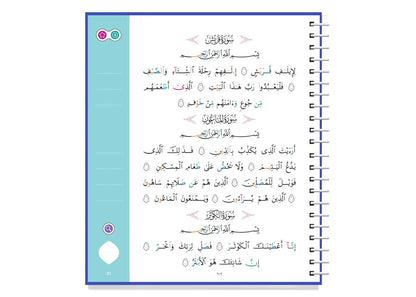 سُورَةُ قُرَيْشٍ
بِسْمِ اللَّهِ الرَّحْمَٰنِ الرَّحِيمِ
لِإِيلَٰفِ قُرَيْشٍ ۝ إِۦلَٰفِهِمْ رِحْلَةَ الشِّتَآءِ وَالصَّيْفِ
۝ فَلْيَعْبُدُوا رَبَّ هَٰذَا الْبَيْتِ ۝ الَّذِي أَطْعَمَهُم
مِّن جُوعٍ وَءَامَنَهُم مِّنْ خَوْفٍ ۝
سُورَةُ الْمَاعُونِ
بِسْمِ اللَّهِ الرَّحْمَٰنِ الرَّحِيمِ
أَرَءَيْتَ الَّذِي يُكَذِّبُ بِالدِّينِ ۝ فَذَٰلِكَ الَّذِي
يَدُعُّ الْيَتِيمَ ۝ وَلَا يَحُضُّ عَلَىٰ طَعَامِ الْمِسْكِينِ ۝
فَوَيْلٌ لِّلْمُصَلِّينَ ۝ الَّذِينَ هُمْ عَن صَلَاتِهِمْ سَاهُونَ
۝ الَّذِينَ هُمْ يُرَآءُونَ ۝ وَيَمْنَعُونَ الْمَاعُونَ ۝
سُورَةُ الْكَوْثَرِ
بِسْمِ اللَّهِ الرَّحْمَٰنِ الرَّحِيمِ
إِنَّآ أَعْطَيْنَٰكَ الْكَوْثَرَ ۝ فَصَلِّ لِرَبِّكَ وَانْحَرْ ۝
إِنَّ شَانِئَكَ هُوَ الْأَبْتَرُ ۝